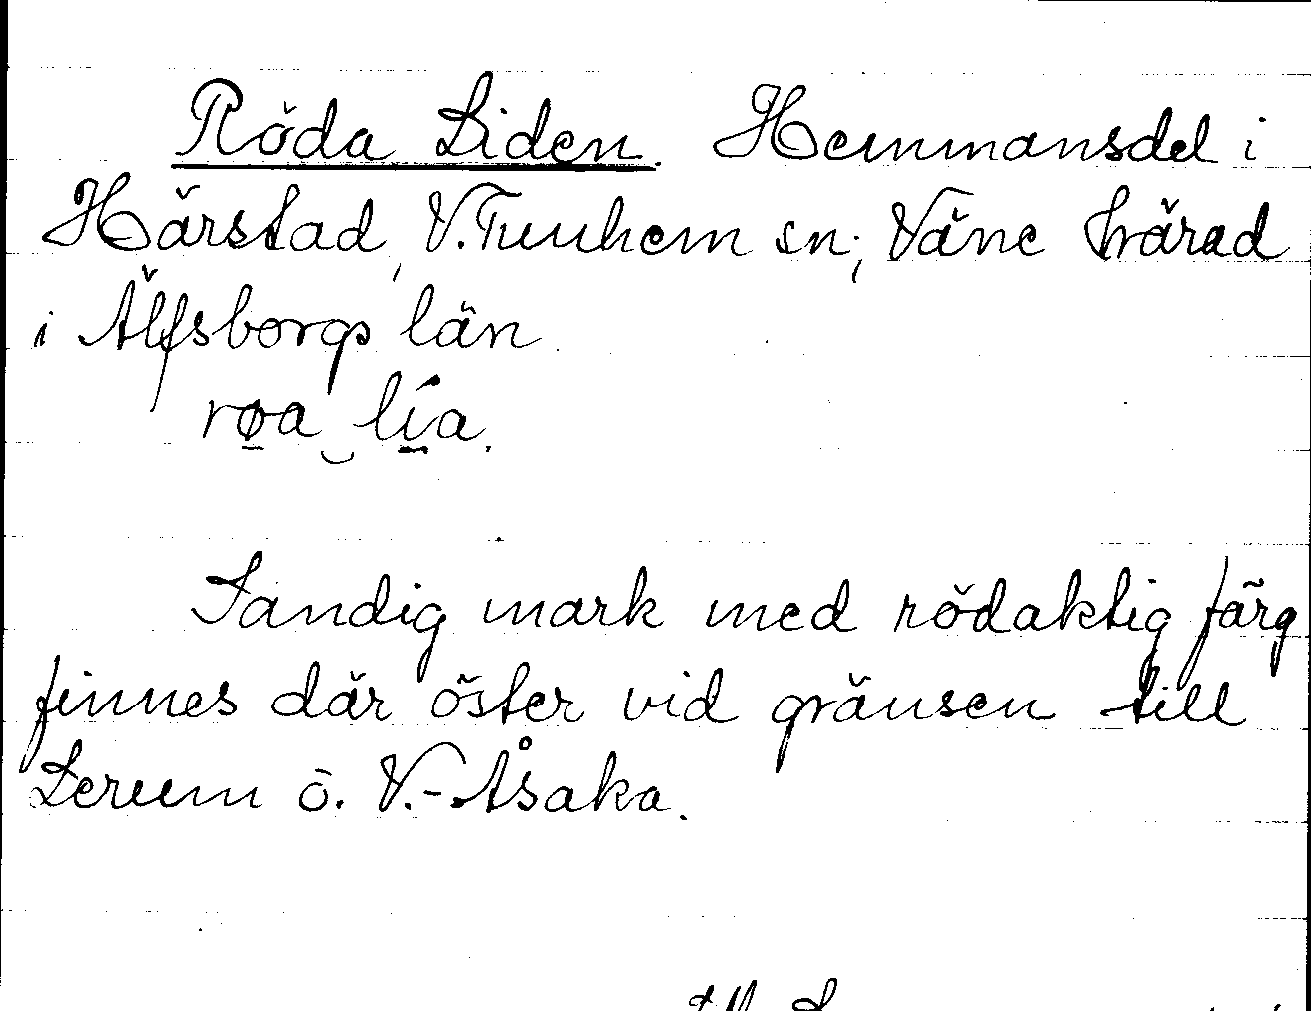 Röda Liden. Hemmansdel i
Härstad, V. Tunhem sn; Väne härad
i Älfsborgs län
røa lía.
Sandig mark med rödaktig färg
finnes där öster vid gränsen till
Lerum o. V.-Åsaka.